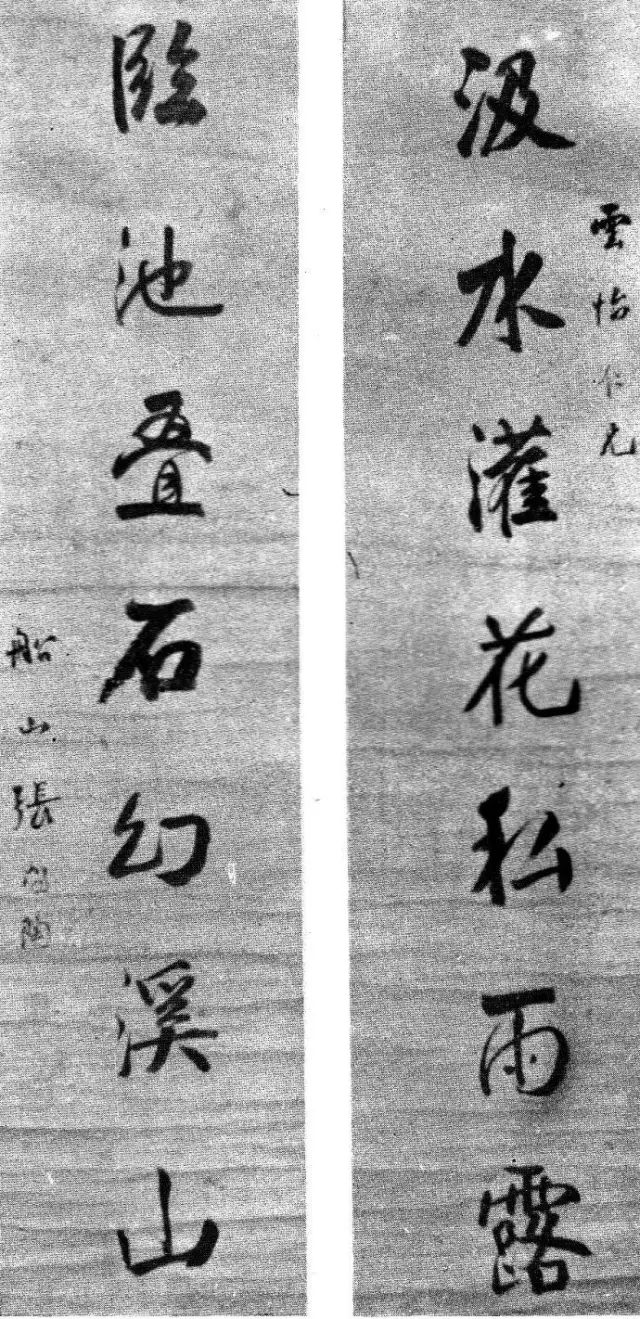 雲怡仁兄
汲水灌花私雨露
臨池叠石幻溪山
船山張問陶